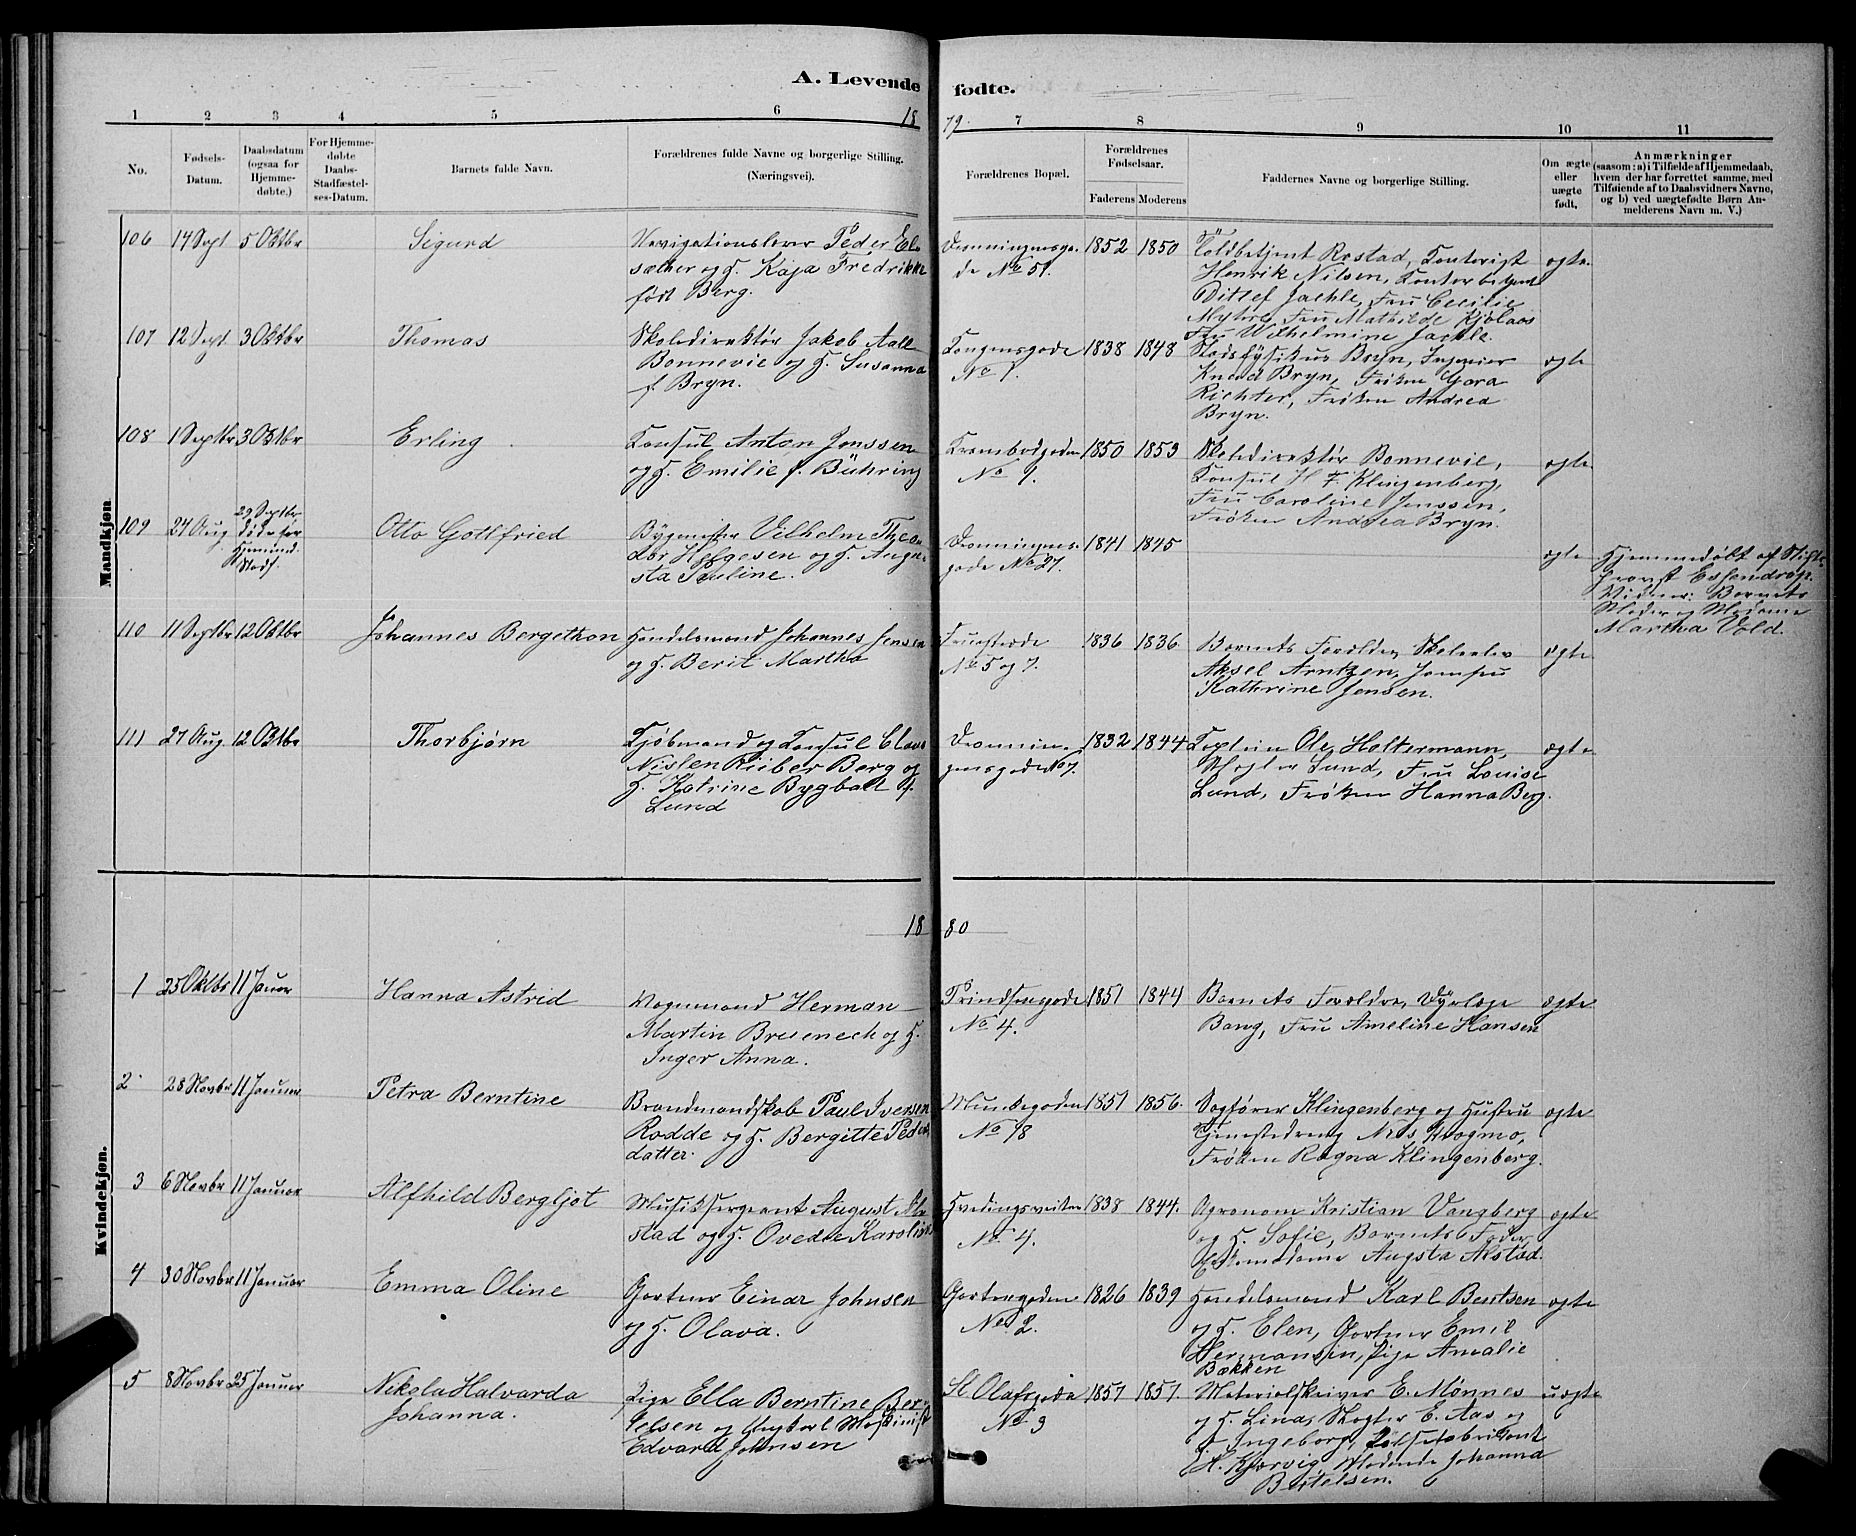 A. Levende fødte.
18 79.
1 2 3 4 5 6 7 8 9 10 11
No.
Fødsels-
Datum.
Daabsdatum
(ogsaa for
Hjemme-
døbte.)
For Hjemme-
døbte
Daabs-
Stadfæstel-
ses-Datum.
Barnets fulde Navn.
Forældrenes fulde Navne og borgerlige Stilling.
(Næringsvei).
Forældrenes Bopæl.
Forældrenes
Fødselsaar.
Faderens Moderens
Faddernes Navne og borgerlige Stilling.
Om ægte
eller
uægte
født.
Anmærkninger
(saasom: a) i Tilfælde af Hjemmedaab,
hvem der har forrettet samme, med
Tilføiende af to Daabsvidners Navne,
og b) ved uægtefødte Børn An-
melderens Navn m. V.)
Mandkjøn
106 14 Sept 5 Oktbr Sigurd
Navigationslærer Peder El-
sæther og H. Kaja Fredrikke
født Berg.
Dronningensga-
de No 51.
1852 1850
Toldbetjent Rostad, Kontorist
Henrik Nilsen, Kontorbetjent
Ditlef Jaehle, Fru Cecilie
Myhre, Fru Mathilde Kjølaas
Fru Wilhelmine Jaehle.
ægte
107 12 Sept 3 Oktbr Thomas
Skoledirektør Jakob Aall
Bonnevie og H. Susanna
f Bryn.
Kongensgade
No 1.
1838 1848
Stadsfysikus Bryn, Ingeniør
Knud Bryn, Frøken Gara
Richter, Frøken Andrea
Bryn.
ægte
108 1 Septbr 3 Oktbr Erling
Konsul Anton Jenssen
og H. Emilie f. Bühring
Krambodgaden
No 9.
1850 1853
Skoledirektør Bonnevie,
Konsul H F. Klingenberg,
Fru Caroline Jenssen,
Frøken Andrea Bryn.
ægte
109 24 Aug
29 Septbr
døde før
Hjemmed.
Stadf.
Otto Gottfried
Bygmester Vilhelm Theo-
dor Helgesen og H. Augu-
sta Pauline.
Dronningens-
gade No 27.
1841 1845
ægte
Hjemmedøbt af Stifts-
provst Essendrop.
Vidner: Barnets
Moder og Madame
Martha Vold.
110 11 Septbr 12 Oktbr Johannes Bergethon
Handelsmand Johannes Jensen
og H. Berit Martha
Fruestræde
No 5 og 7.
1836 1836
Barnets Forældre, Skoleelev
Aksel Arntzen, Jomfru
Kathrine Jensen.
ægte
111 27 Aug 12 Oktbr Thorbjørn
Kjøbmand og Konsul Claus
Nislen Riiber Berg og
H. Katrine Bygball f.
Lund
Dronnin-
gensgade No 7.
1832 1844
Kaptein Ole Holtermann,
Mægler Lund, Fru Louise
Lund, Frøken Hanna Berg.
ægte
18 80
Kvindekjøn.
1 25 Oktbr 11 Januar Hanna Astrid
Vognmand Herman
Martin Breseneck og H.
Inger Anna.
Prindsensgade
No 4.
1851 1844
Barnets Forældre, Dyrlæge
Bang, Fru Ameline Hansen
ægte
2 28 Novbr 11 Januar Petra Berntine
Brandmandskab Paul Iversen
Rodde og H. Bergitte Peders
datter.
Munkegaden
No 18
1851 1856.
Sagfører Klingenberg og Hustru
Tjenestedreng Nils Krogmo,
Frøken Ragna Klingenberg.
ægte
3 6 Novbr 11 Januar Alfhild Bergljot
Musiksergeant August Al-
stad og H. Ovedie Karoline
Hvedingsveiten
No 4.
1838 1844.
Agronom Kristian Vangberg
og H. Sofie, Barnets Fader,
Enkemadame Augsta Alstad.
ægte
4 30 Novbr 11 Januar Emma Oline
Gartner Einar Johnsen
og H. Olava.
Gartnegaden
No 2.
1826 1839
Handelsmand Karl Bentsen
og H. Elen, Gartner Emil
Hermansen, Pige Amalie
Bækken
ægte
5 8 Novbr 25 Januar Nikola Halvarda
Johanna.
Pige Ella Berntine Ber-
telsen og Ungkarl Maskinist
Edvard Johnsen
St Olafsgade
No 3
1857 1857.
Materialskriver E. Mønnes
og H. Lina, Slagter E. Aas og
H. Ingeborg, Pølsefabrikant
H. Kjørvig, Madame Johanna
Bertelsen.
uægte